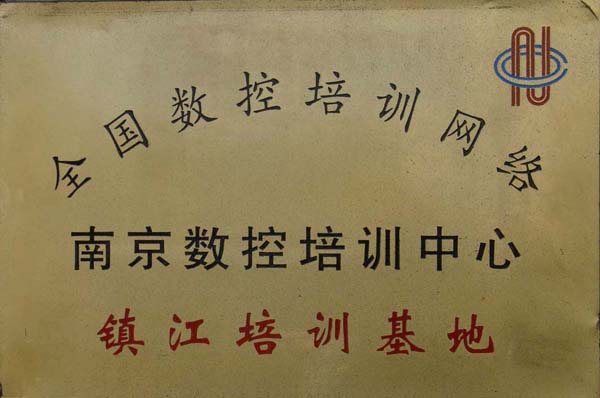 全国数控培训网络
南京数控培训中心
镇江培训基地